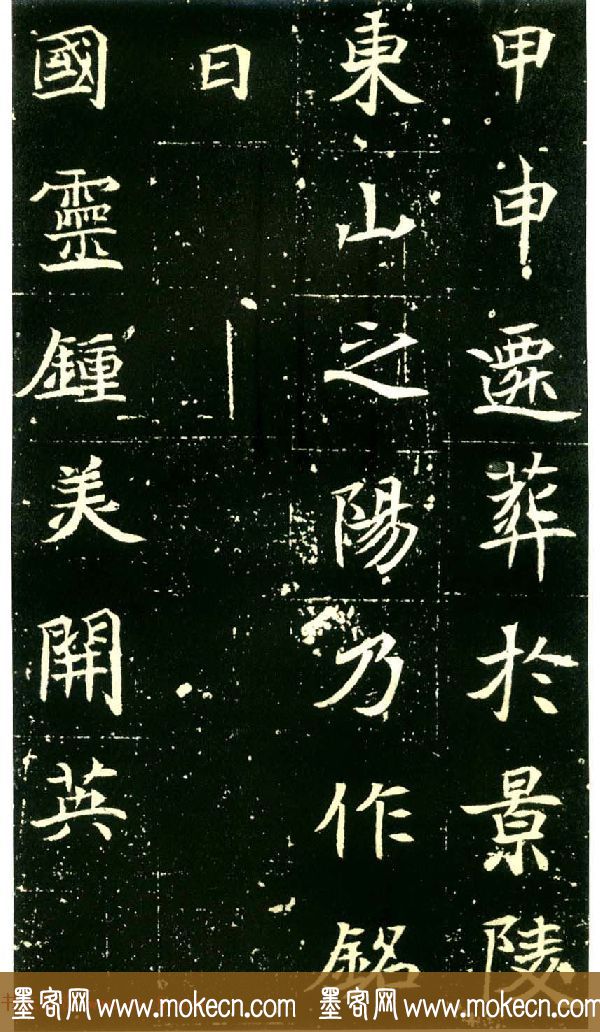 甲申遷葬於景陵
東山之陽乃作銘
曰
國靈鍾美開英
墨客网 www.mokecn.com 墨客网 www.mokecn.com